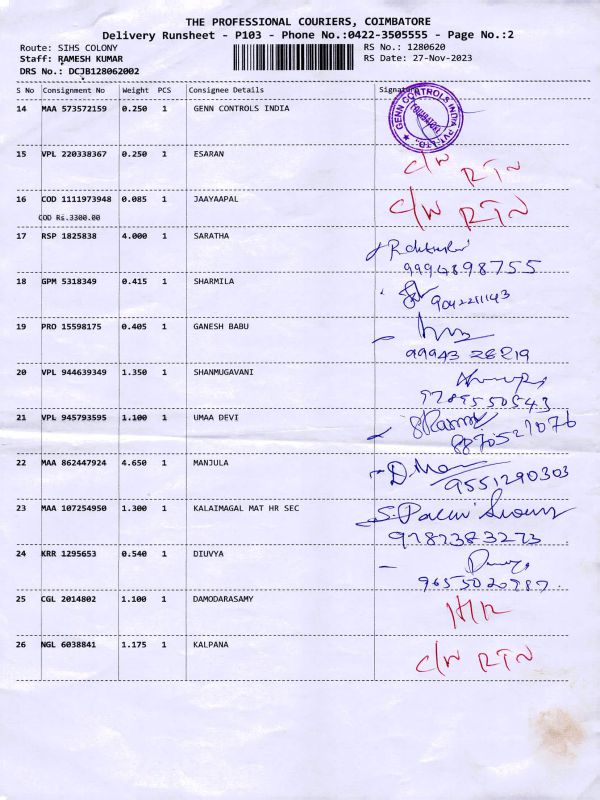 THE PROFESSIONAL COURIERS, COIMBATORE
Delivery Runsheet - P103 - Phone No.:0422-3505555 - Page No.:2
Route: SIHS COLONY RS No.: 1280620
Staff: RAMESH KUMAR RS Date: 27-Nov-2023
DRS No.: DCJB128062002
S No Consignment No Weight PCS Consignee Details Signature
14 MAA 573572159 0.250 1 GENN CONTROLS INDIA GENN CONTROLS INDIA PVT. LTD.
15 VPL 220338367 0.250 1 ESARAN C/W RTN
16 COD 1111973948 0.085 1 JAAYAAPAL C/W RTN
COD Rs.3300.00
17 RSP 1825838 4.000 1 SARATHA
9994898755
18 GPM 5318349 0.415 1 SHARMILA 9042211143
19 PRO 15598175 0.405 1 GANESH BABU
99943 28219
20 VPL 944639349 1.350 1 SHANMUGAVANI
9789550543
21 VPL 945793595 1.100 1 UMAA DEVI
8870521076
22 MAA 862447924 4.650 1 MANJULA
9551290303
23 MAA 107254950 1.300 1 KALAIMAGAL MAT HR SEC
9787383273
24 KRR 1295653 0.540 1 DIUVYA
9655020787
25 CGL 2014802 1.100 1 DAMODARASAMY
26 NGL 6038841 1.175 1 KALPANA C/W RTN